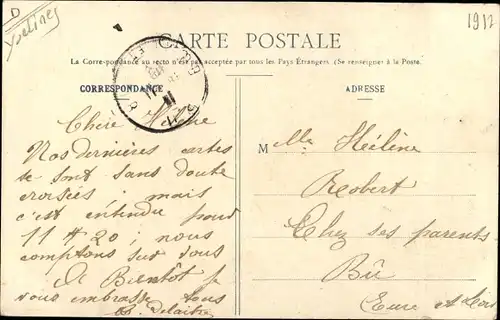 D
Yvelines
1912
CARTE POSTALE
La Correspondance au recto n'est pas acceptée par tous les Pays Étrangers. (Se renseigner à la Poste.
CORRESPONDANCE
ADRESSE
Chère Hélène
Nos dernières cartes
se sont sans doute
croisées; mais
c'est entendu pour
11 H 20; nous
comptons sur vous
A Bientôt je
vous embrasse tous
Delaitre
M elle Hélène
Robert
Chez ses parents
Bû
Eure et Loir